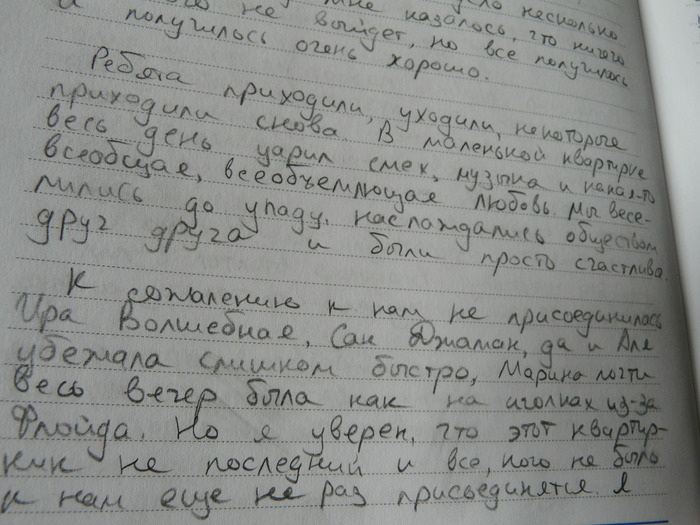 несколько
мне казалось, что ничего
не выйдет, но все получилось
получилось очень хорошо.
Ребята приходили, уходили, некоторые
приходили снова. В маленькой квартирке
весь день царил смех, музыка и какая-то
всеобщая, всеобъемлющая любовь. Мы весе-
лились до упаду, наслаждались обществом
друг друга и были просто счастливы.
К сожалению к нам не присоединилась
Ира Волшебная, Сан Джаман, да и Але
убежала слишком быстро, Марина почти
весь вечер была как на иголках из-за
Флойда. Но я уверен, что этот квартир-
ник не последний и все, кого не было
к нам еще не раз присъединятся. Я